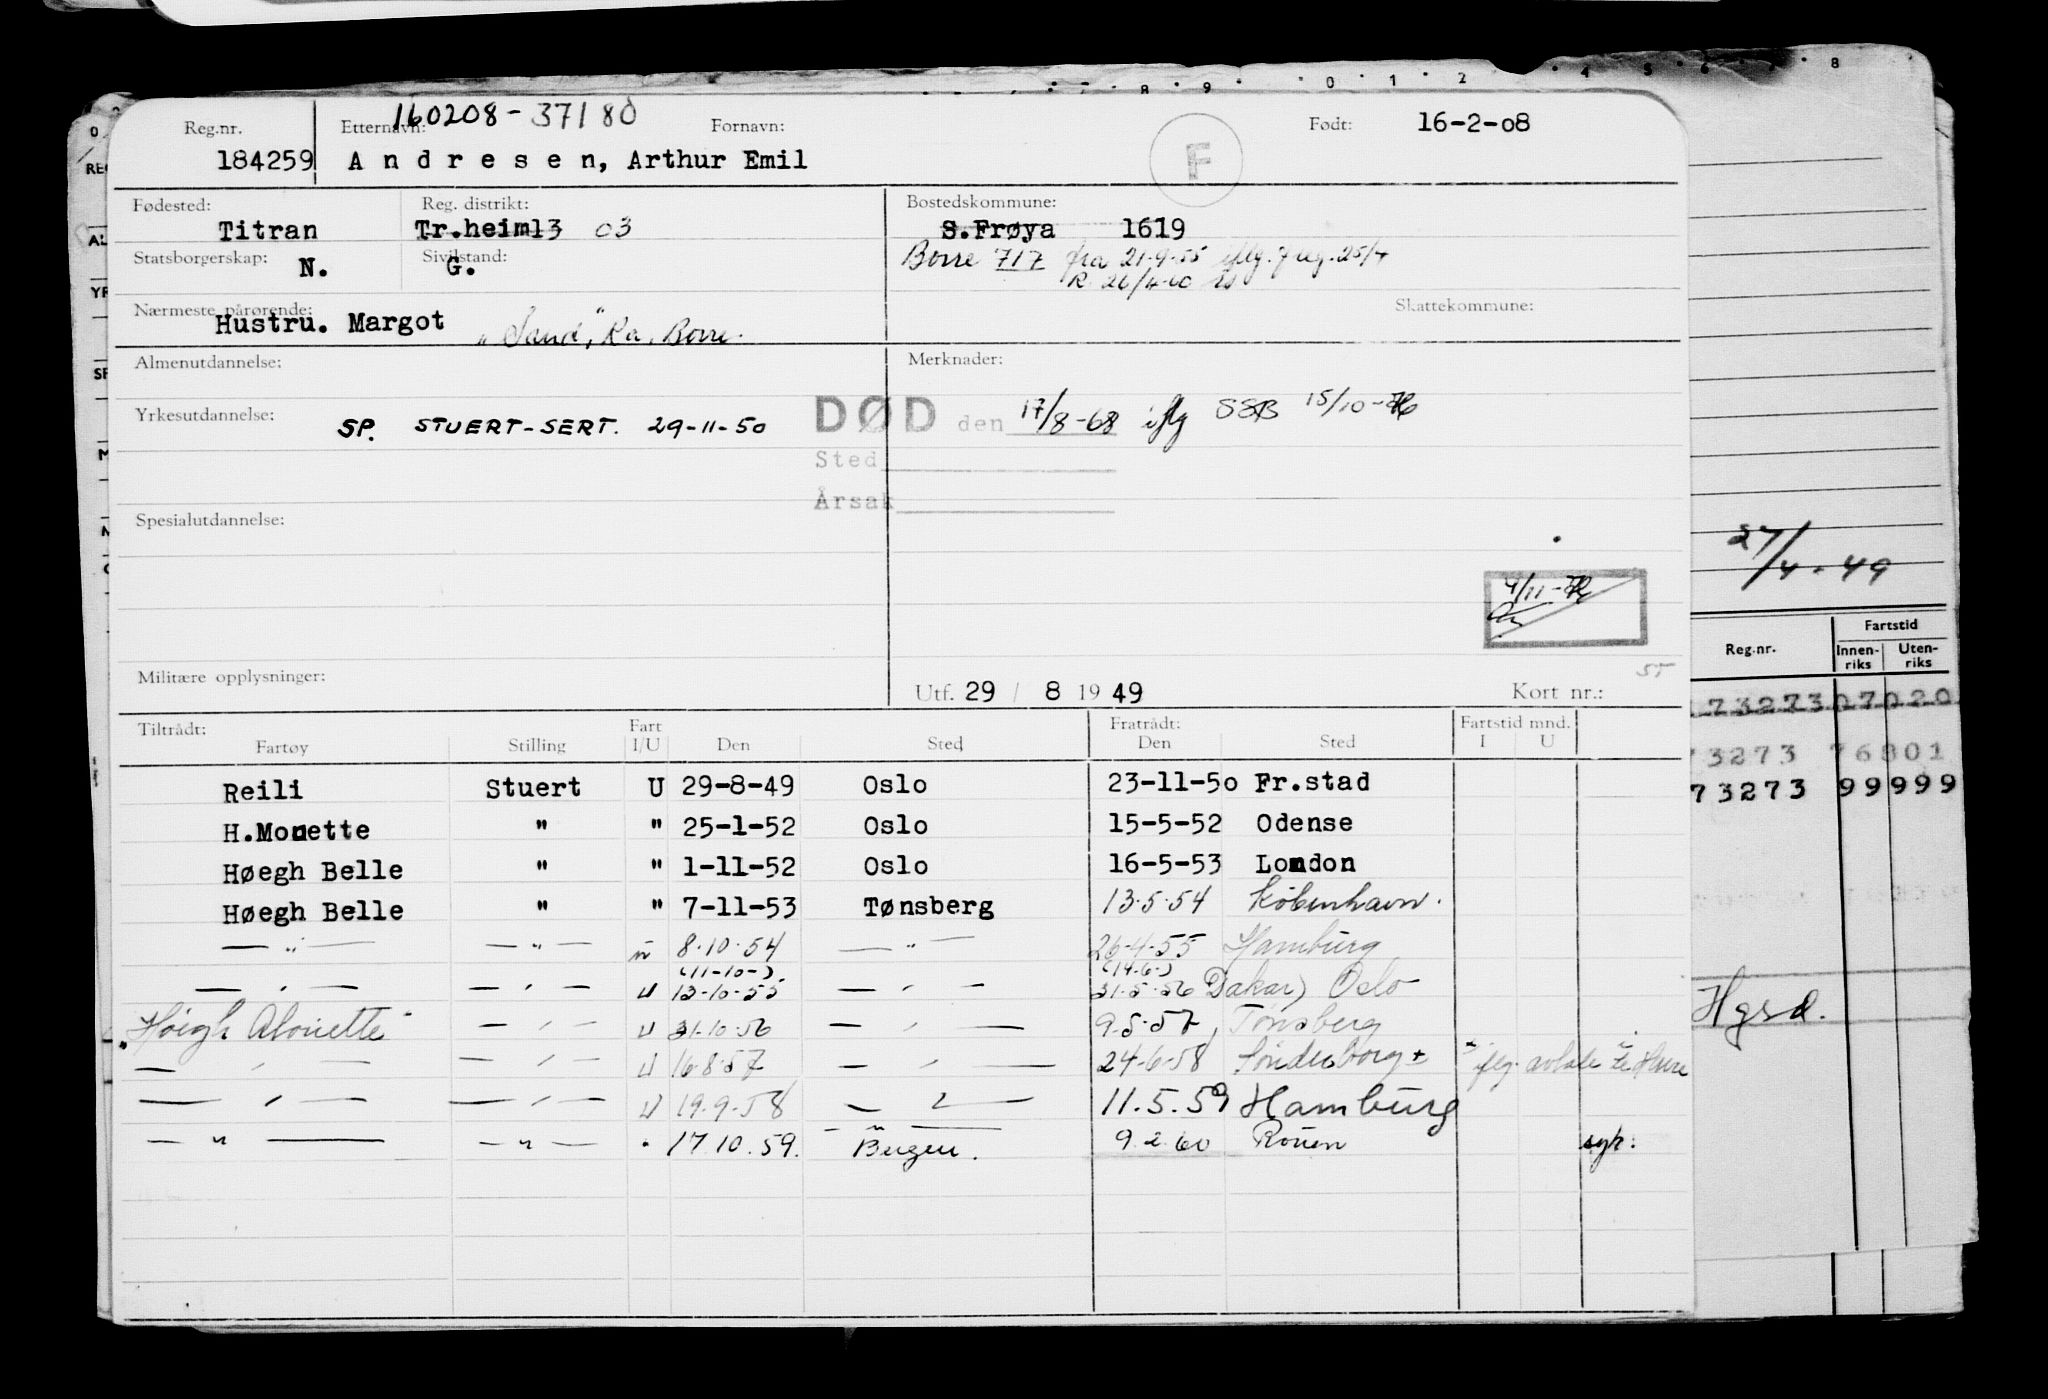 160208-37180
Reg.nr. Etternavn: Fornavn: Født: 16-2-08
184259 Andresen, Arthur Emil F
Fødested: Reg. distrikt: Bostedskommune:
Titran Tr.heim13 03 S.Frøya 1619
Statsborgerskap: N. Sivilstand: G. Borre 717 fra 21-9-55 iflg. f.reg. 25/4
R. 26/4-60
Nærmeste pårørende: Skattekommune:
Hustru. Margot "Sand", Ra, Borre.
Almenutdannelse: Merknader:
Yrkesutdannelse: SP. STUERT-SERT. 29-11-50 DØD den 17/8-68 iflg SSB 15/10-76
Sted
Årsak
Spesialutdannelse:
27/4-49
4/11-76
Militære opplysninger: Utf. 29 / 8 19 49 Kort nr.: 55
Reg.nr. Fartstid
Innenriks Utenriks
173273 07020
73273 76801
73273 99999
Tiltrådt: Fratrådt: Fartstid mnd.
Fartøy Stilling Fart I/U Den Sted Den Sted I U
Reili Stuert U 29-8-49 Oslo 23-11-50 Fr.stad
H.Monette " " 25-1-52 Oslo 15-5-52 Odense
Høegh Belle " " 1-11-52 Oslo 16-5-53 London
Høegh Belle " " 7-11-53 Tønsberg 13.5.54 København.
— " — — " — " 8.10.54 — " — 26-4-55 Hamburg
(11-10-) (14-6-)
— " — — " — U 13-10-55 — " — 31.5.56 Dakar) Oslo
"Høegh Alouette" — " — U 31.10.56 — " — 9.5.57, Tønsberg
— " — — " — U 16.8.57 — " — 24-6-58 Sønderborg + iflg. avtale Le Havre
— " — — " — U 19.9.58 — " — 11.5.59 Hamburg
— " — — " — " 17.10.59. Bergen. 9.2.60 Rouen syk.
Hgsd.